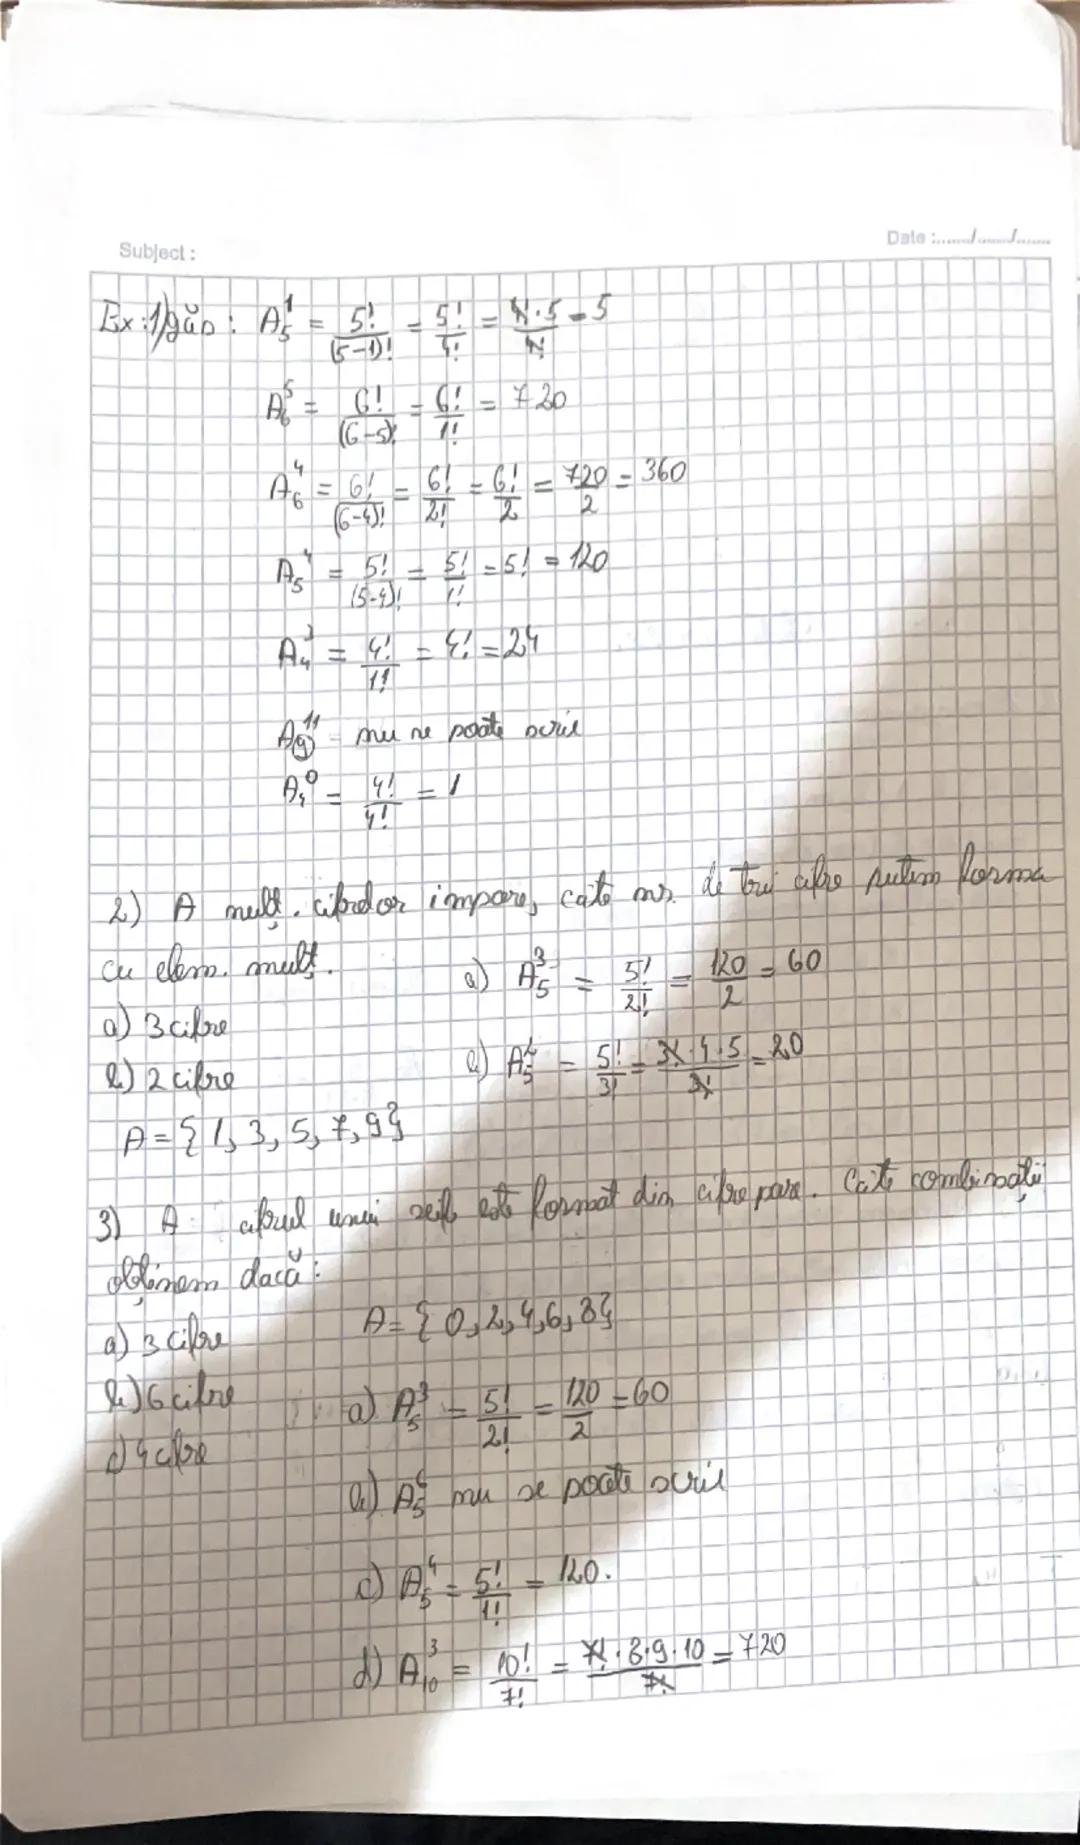 Subject :
Date :....../....../.......
Ex: 1) A₅¹ = 5!/(5-1)! = 5!/4! = 4!·5/4! = 5
A₆⁵ = 6!/(6-5)! = 6!/1! = 720
A₆⁴ = 6!/(6-4)! = 6!/2! = 6!/2 = 720/2 = 360
A₅⁴ = 5!/(5-4)! = 5!/1! = 5! = 120
A₄³ = 4!/1! = 4! = 24
A₉¹¹ - nu se poate scrie
A₄⁰ = 4!/4! = 1
2) A mulț. cifrelor impare, cate nr. de trei cifre putem forma
cu elem. mulț.
a) 3 cifre
a) A₅³ = 5!/2! = 120/2 = 60
b) 2 cifre
b) A₅² = 5!/3! = 3!·4·5/3! = 20
A = {1, 3, 5, 7, 9}
3) A cifrul unui seif este format din cifre pare. Cate combinații
obținem dacă:
a) 3 cifre
A = {0, 2, 4, 6, 8}
b) 6 cifre
a) A₅³ = 5!/2! = 120/2 = 60
c) 4 cifre
b) A₅⁶ nu se poate scrie
c) A₅⁴ = 5!/1! = 120.
d) A₁₀³ = 10!/7! = 7!·8·9·10/7! = 720